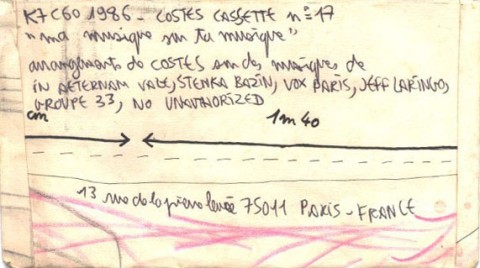 K7 C60 1986 - COSTES CASSETTE n° 17
"ma musique sur ta musique"
arrangements de COSTES sur des musiques de
IN AETERNAM VALE, STENKA BAZIN, VOX PARIS, JEFF LARINGO,
GROUPE 33, NO UNAUTHORIZED
cm
1m 40
13 rue de la pierre levée 75011 PARIS - FRANCE